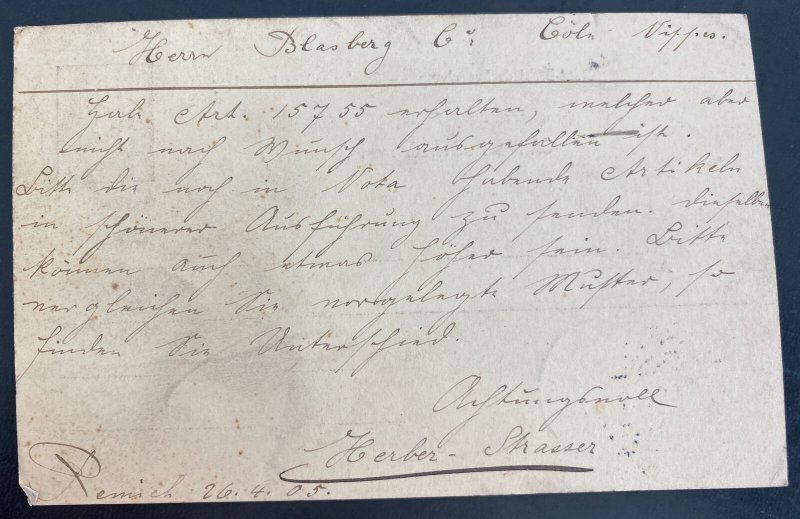 Herrn Blasberg Cº. Cöln Nippes.
Hab Art. 15755 erhalten, welcher aber
nicht nach Wunsch ausgefallen ist.
Bitte die noch in Nota habende Artikeln
in schönerer Ausführung zu senden. Dieselben
können auch etwas höher sein. Bitte
vergleichen Sie vorgelegte Muster, so
finden Sie Unterschied.
Achtungsvoll
Herber-Strasser
Remich 26.4.05.